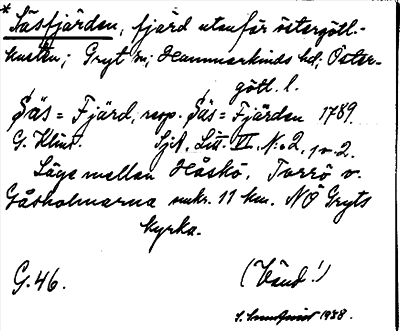 * Säsfjärden, fjärd utanför östergötl.-
kusten; Gryt sn; Hammarkinds hd, Öster-
götl. l.
Säs = Fjärd, resp. Säs = Fjärden 1789.
G. Klint. Sjk. Litt. VI. N:o 2, 
Läge mellan Håskö, Torrö o.
Gåsholmarna omkr. 11 km. NÖ Gryts
kyrka.
G. 46. (Vänd!)
S. 1938.